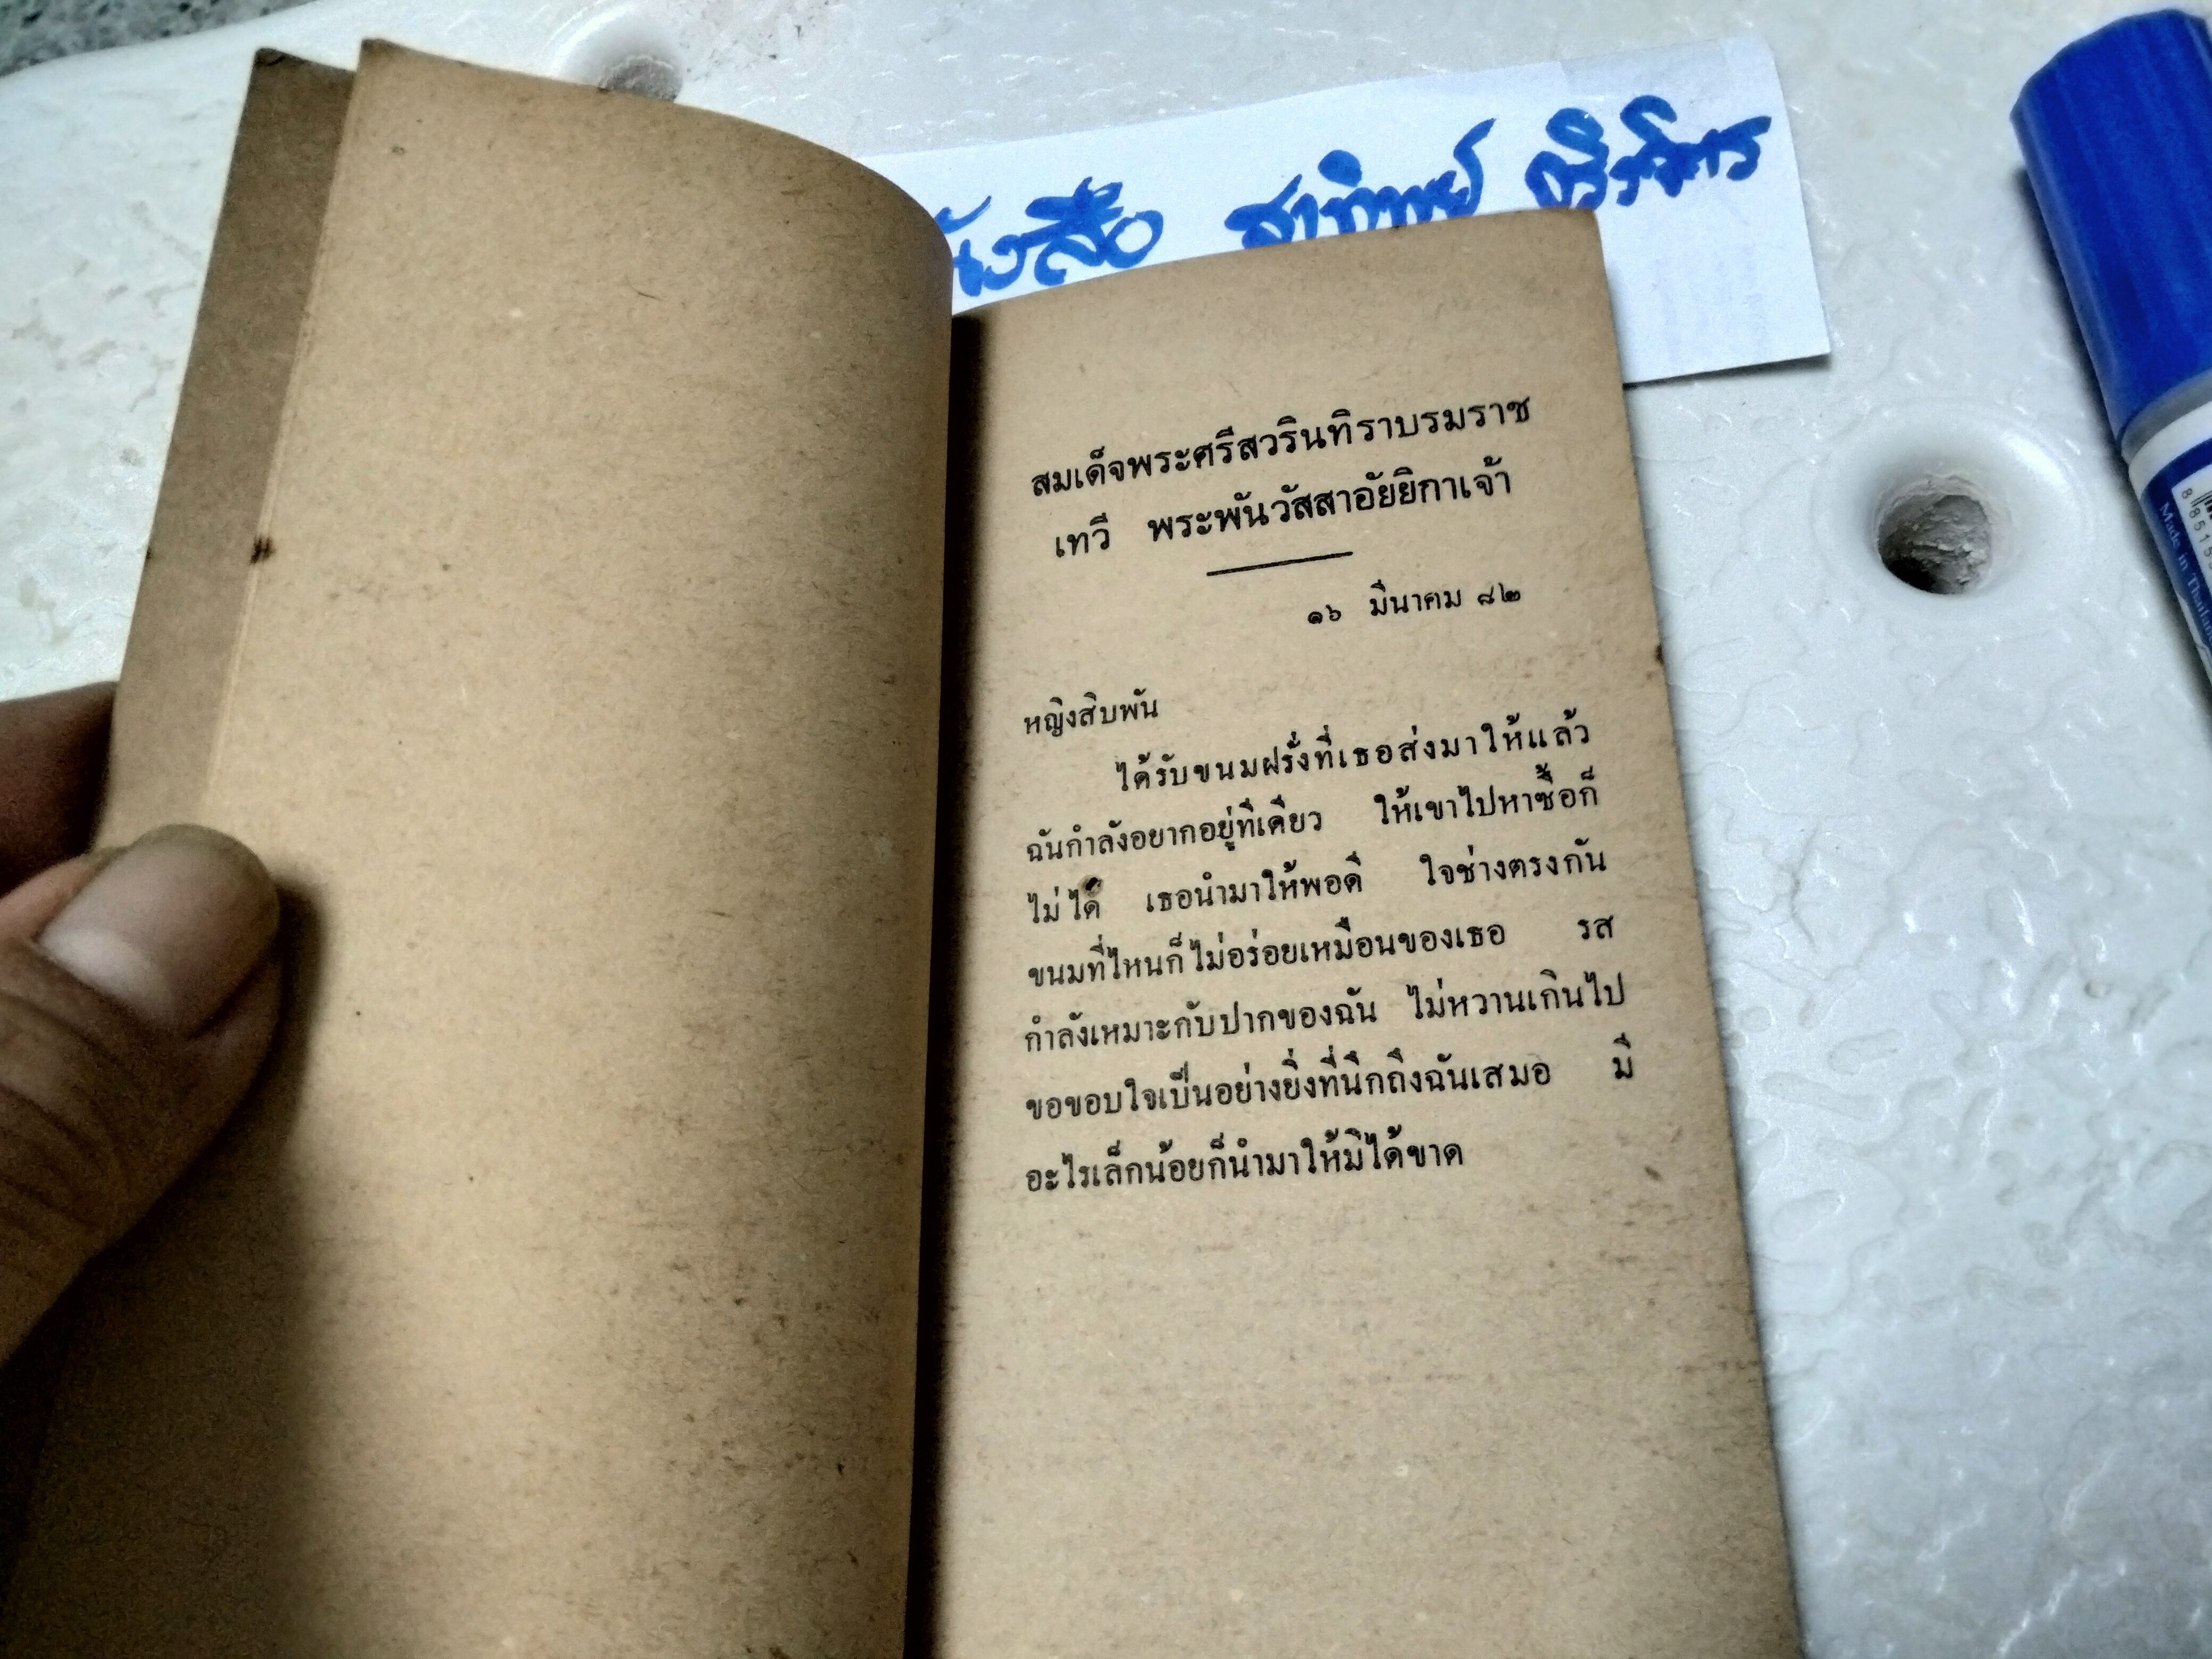 หนังสือ สาทิพย์
สมเด็จพระศรีสวรินทิราบรมราช
เทวี พระพันวัสสาอัยยิกาเจ้า
๑๖ มีนาคม ๘๒
หญิงสิบพัน
ได้รับขนมฝรั่งที่เธอส่งมาให้แล้ว
ฉันกำลังอยากอยู่ทีเดียว ให้เขาไปหาซื้อก็
ไม่ได้ เธอนำมาให้พอดี ใจช่างตรงกัน
ขนมที่ไหนก็ไม่อร่อยเหมือนของเธอ รส
กำลังเหมาะกับปากของฉัน ไม่หวานเกินไป
ขอขอบใจเป็นอย่างยิ่งที่นึกถึงฉันเสมอ มี
อะไรเล็กน้อยก็นำมาให้มิได้ขาด
Made in Thailan